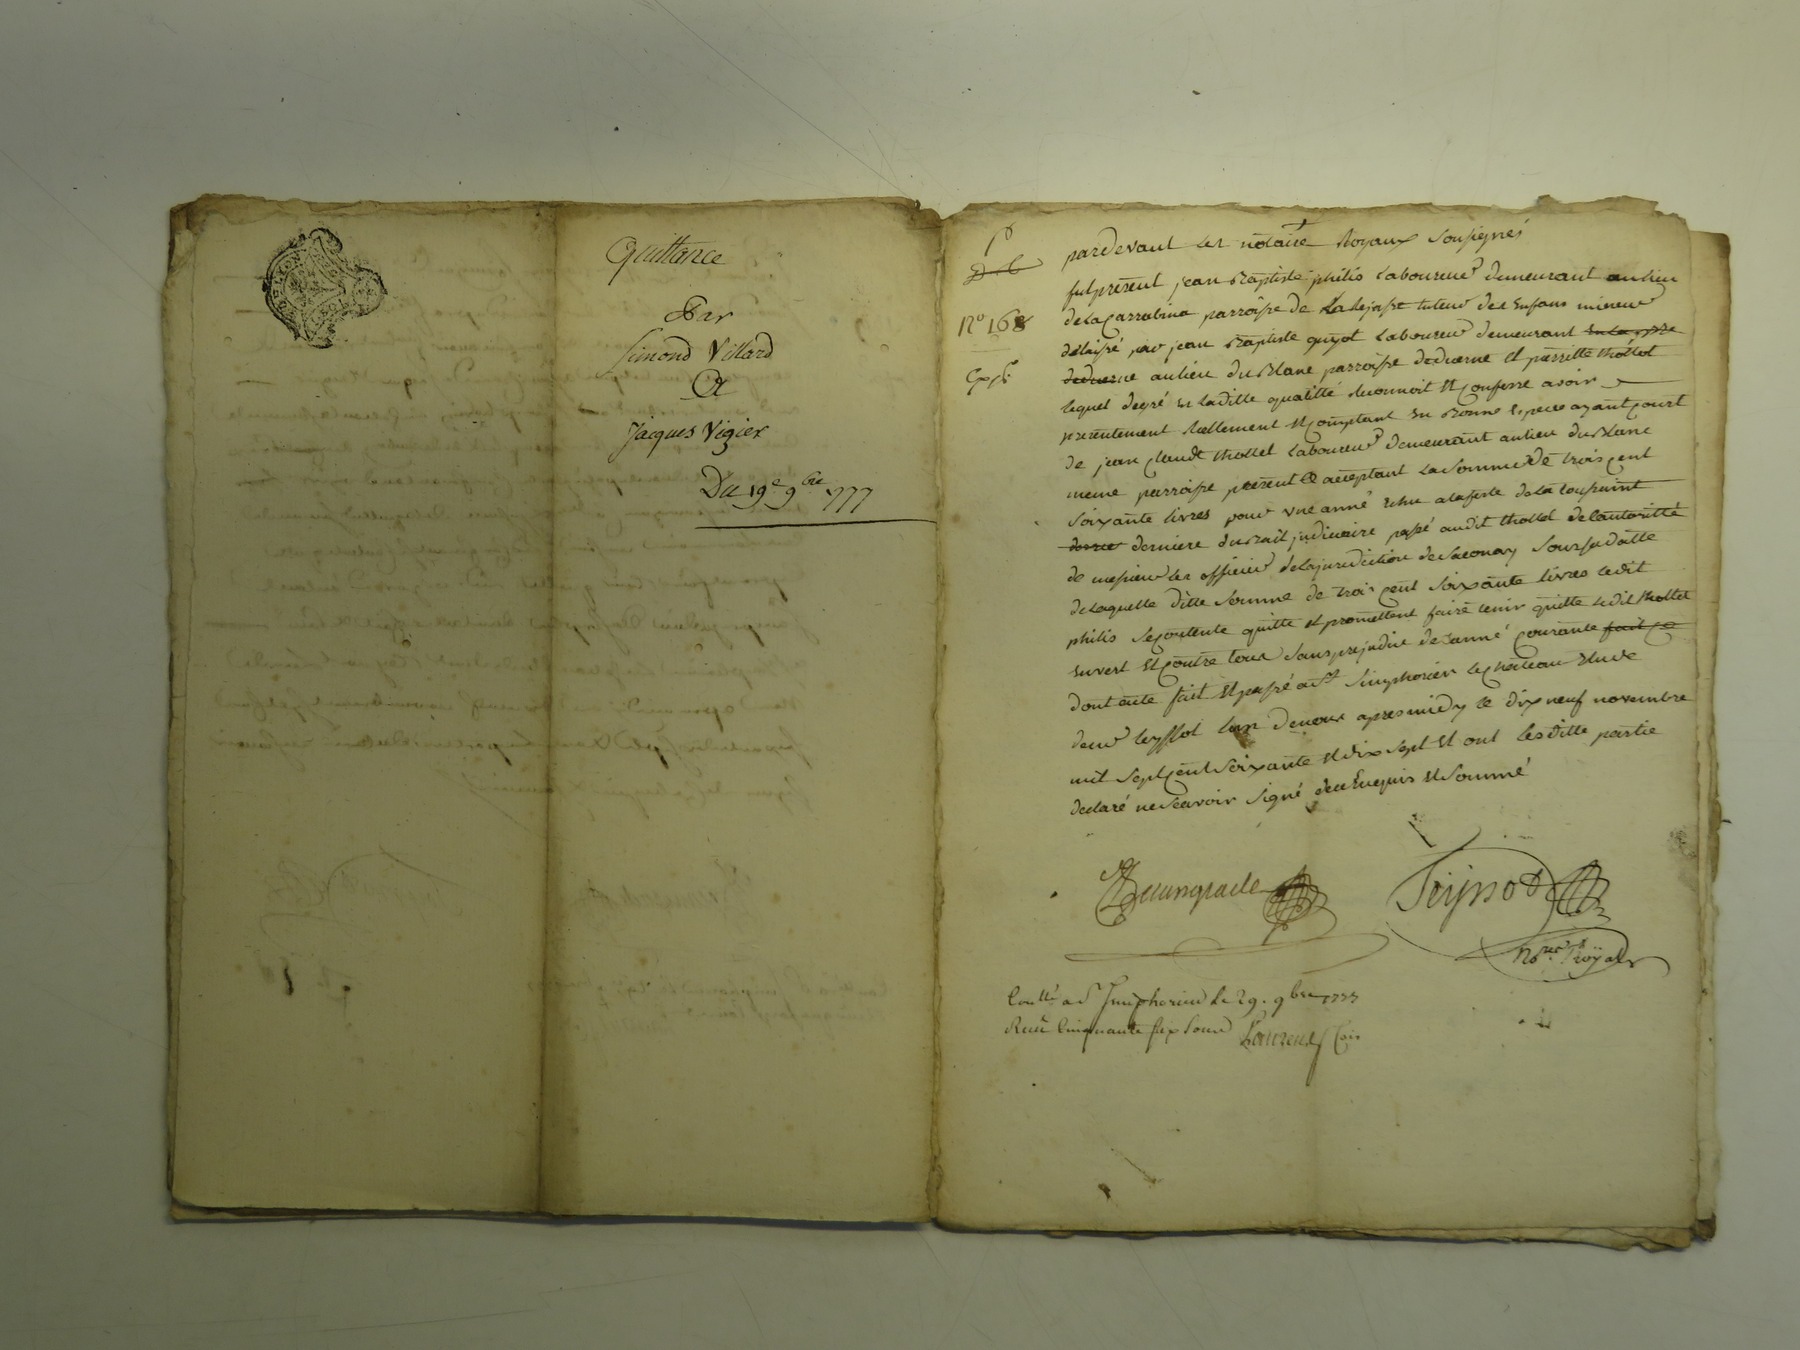 Quittance
Par
Simond Villard
A
Jacques Vigier
Du 19e 9bre 1777
No 168
pardevant les notaire Royaux Sousignés
fut présent jean Baptiste philis Laboureur demeurant au lieu
de la Carrabina parroisse de tuteur des Enfans mineur
délaissé par jean Baptiste guyot Laboureur demeurant
au lieu du Blanc parroisse et pierrette thollet
lequel degré en laditte qualitté reconnoit et confesse avoir
presentement Réellement et comptant en Bonne Espece ayant court
de jean Claude thollet Laboureur demeurant au lieu du Blanc
meme parroisse présent et acceptant la Somme de trois cent
Soixante livres pour une année Echue a la feste de la toussaint
derniere du Bail judiciaire passé audit thollet de lautoritté
de messieur les officier de la jurediction de Saconay Sous sa datte
de laquelle ditte Somme de trois cent Soixante livres ledit
philis Se contente quitte et promettent faire tenir quitte ledit thollet
Envert et contre tous Sans prejudice de lanné courante fait ce
dont acte fait et passé a St Simphorien le Chateau Etude
de nous apres midy le dix neuf novembre
mil Sept cent Soixante et dix Sept et ont lesditte partie
declaré ne Scavoir Signé de ce Enquis et Sommé
Teynod
nore Royal
Conllé a St Simphorien le 29. 9bre 1777
Reçu Cinquante Six Sous Laurens